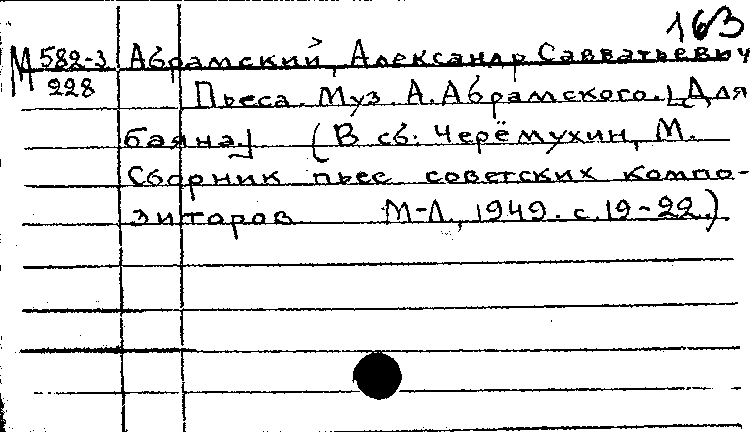 163
М 582-3 Абрамский, Александр Савватьевич
228 Пьеса. Муз. А. Абрамского. [Для
баяна] (В сб: Черёмухин, М.
Сборник пьес советских компо-
зиторов М-Л., 1949. с. 19-22.)